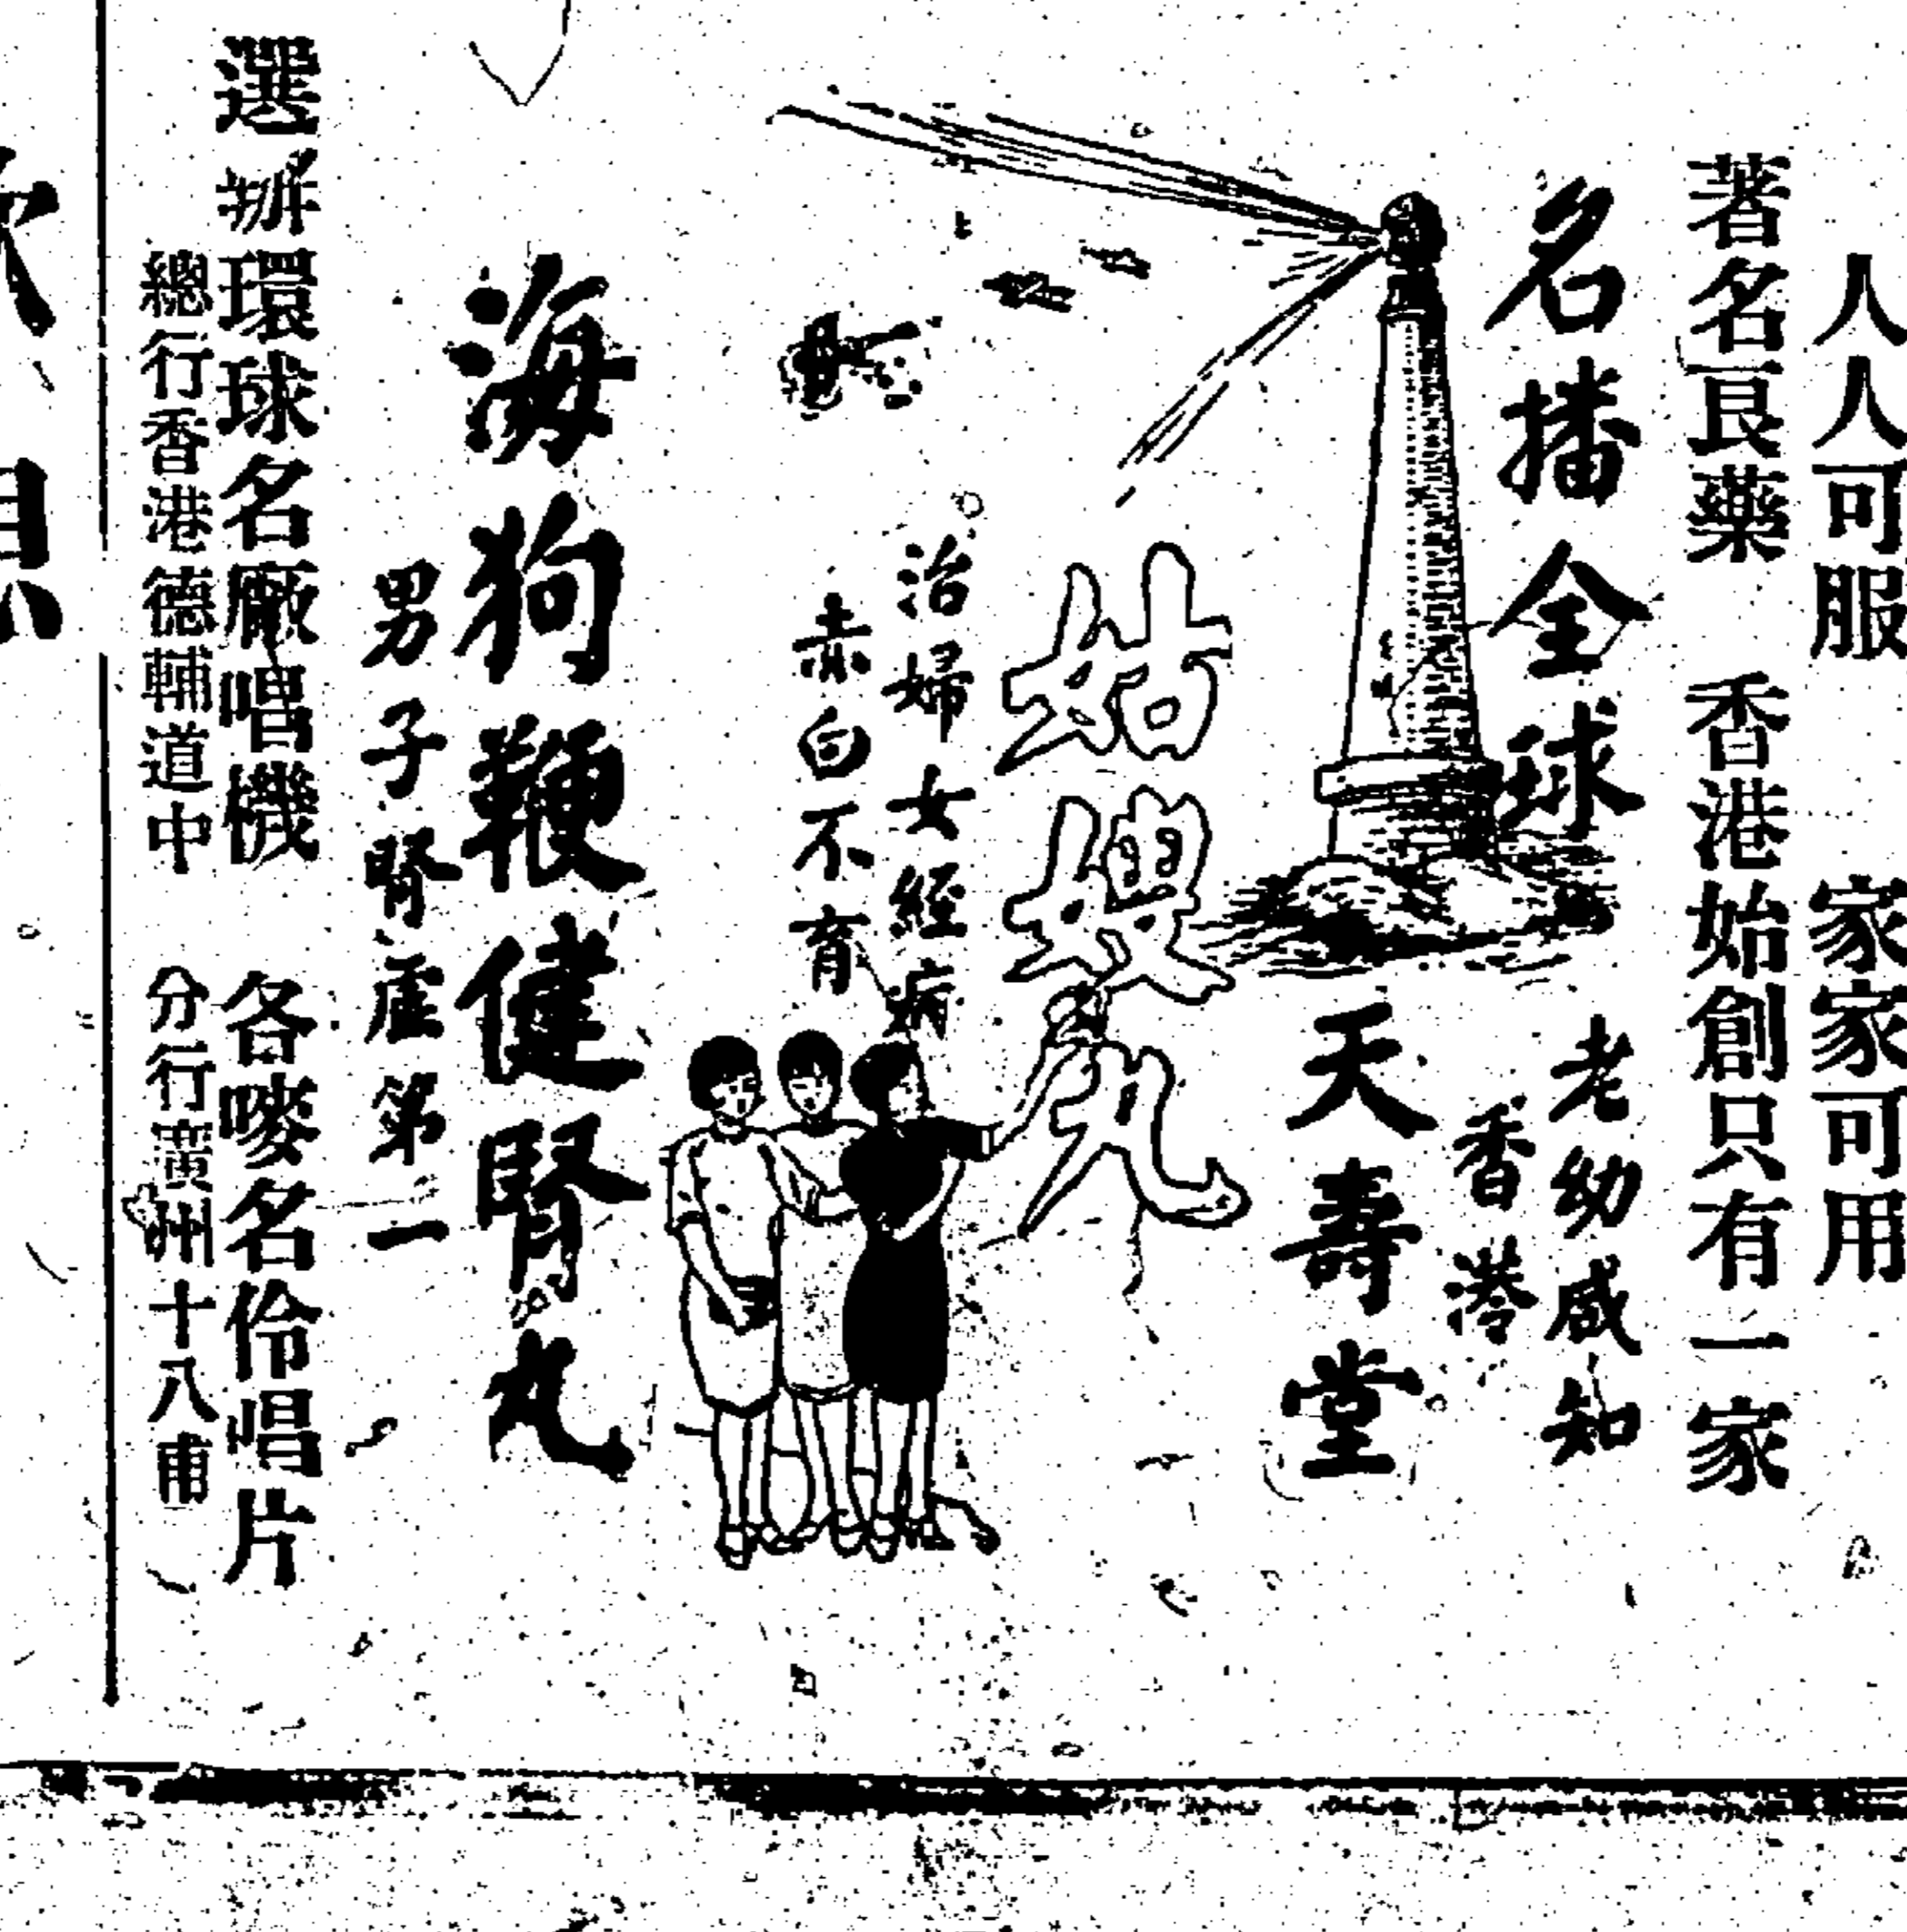 人人可服 家家可用
著名良藥 香港始創只有一家
名播全球 老幼咸知
香港
天壽堂
姑嫂丸
治婦女經病
赤白不育
海狗鞭健腎丸
男子腎虛第一
選辦環球名廠唱機 各嘜名伶唱片
總行香港德輔道中 分行廣州十八甫